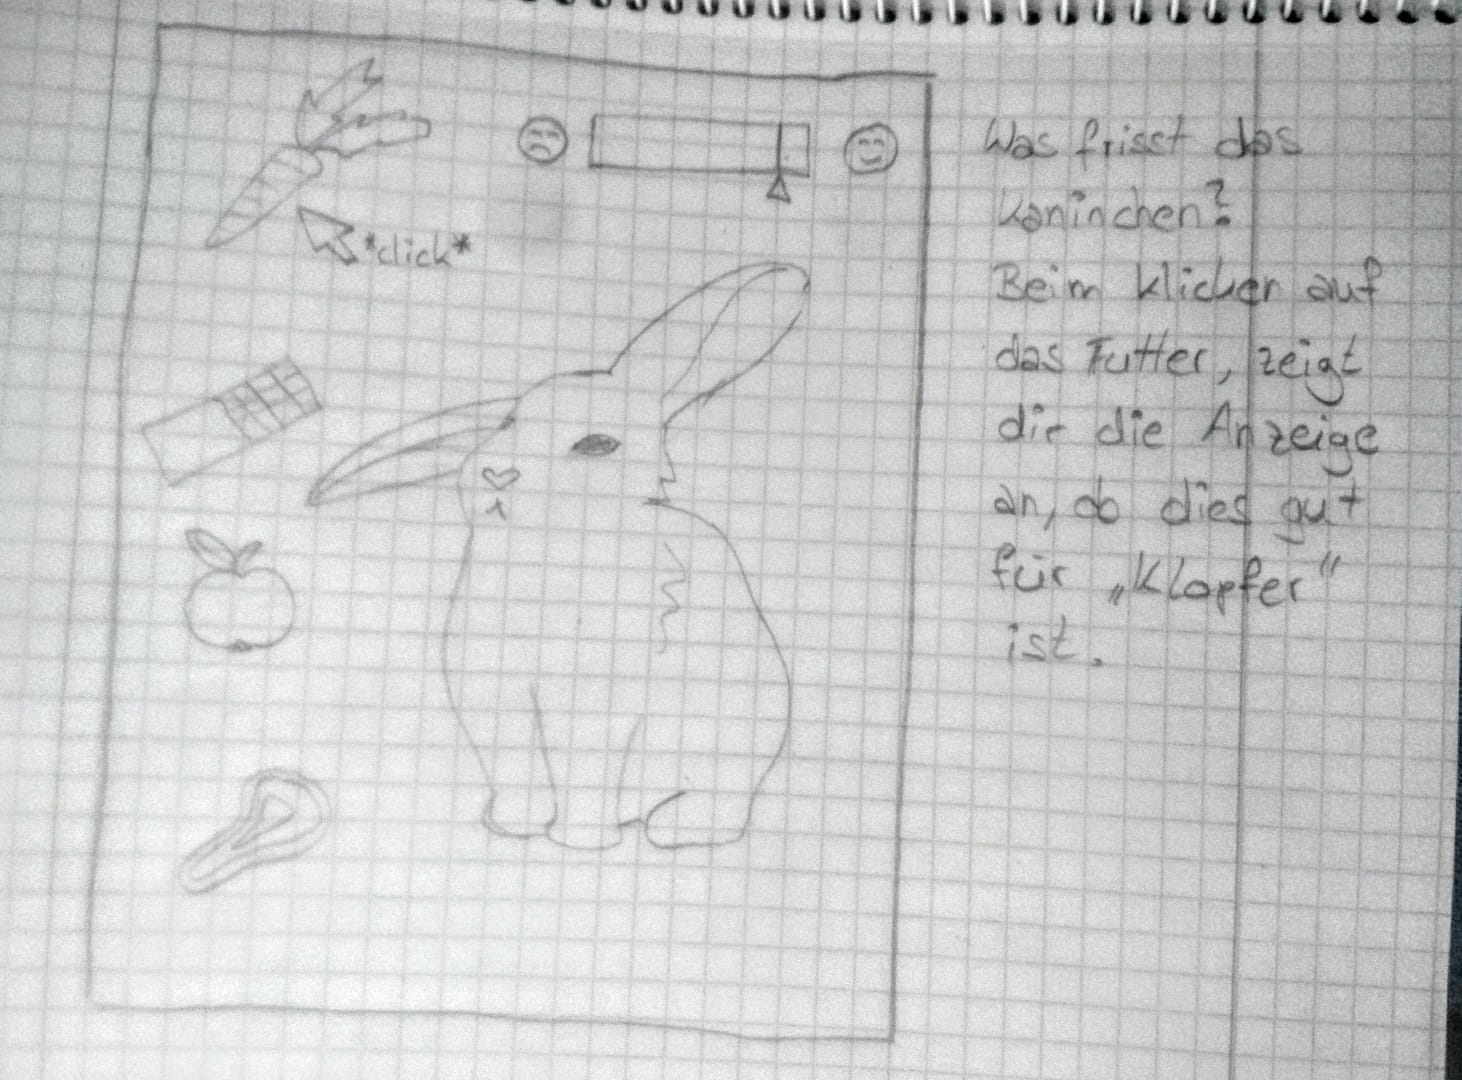 *click*
Was frisst das
Kaninchen?
Beim klicken auf
das Futter, zeigt
dir die Anzeige
an, ob dies gut
für „Klopfer"
ist.